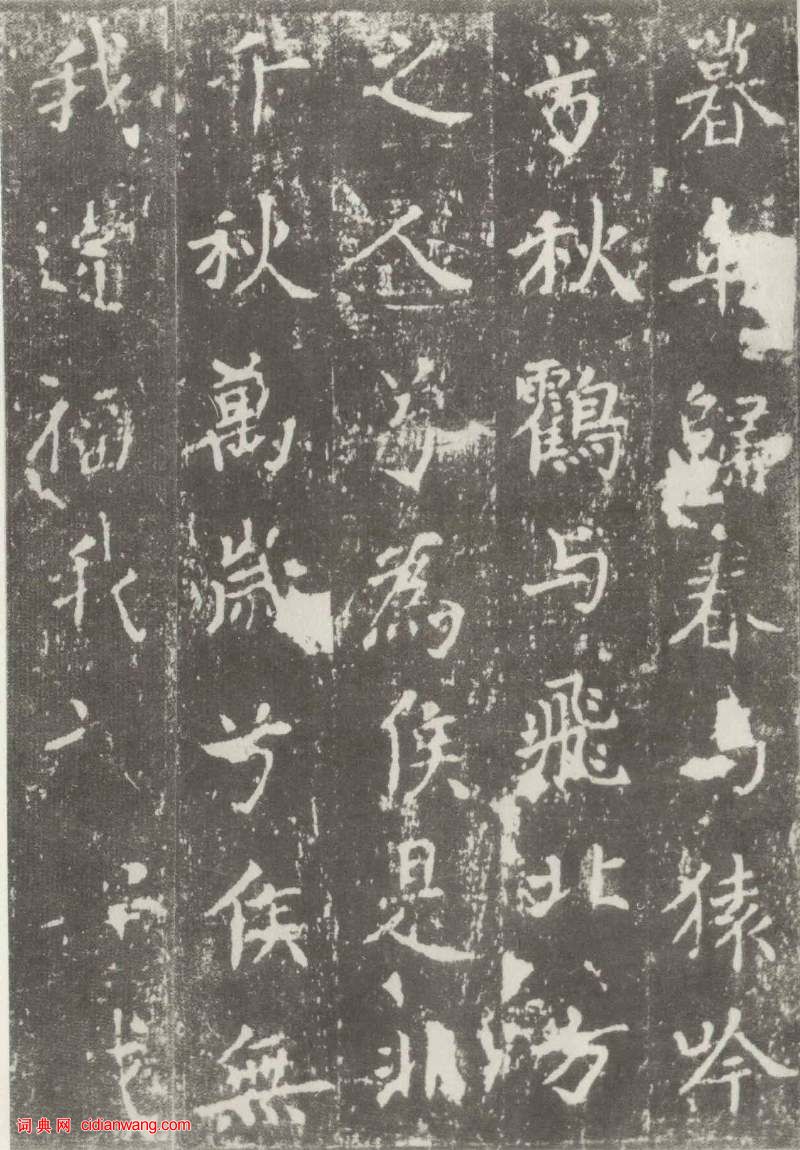 暮来歸春与猿吟
兮秋鶴与飛北方
之人兮為侯是非
千秋萬歲兮侯無
我違福我兮
词典网 cidianwang.com